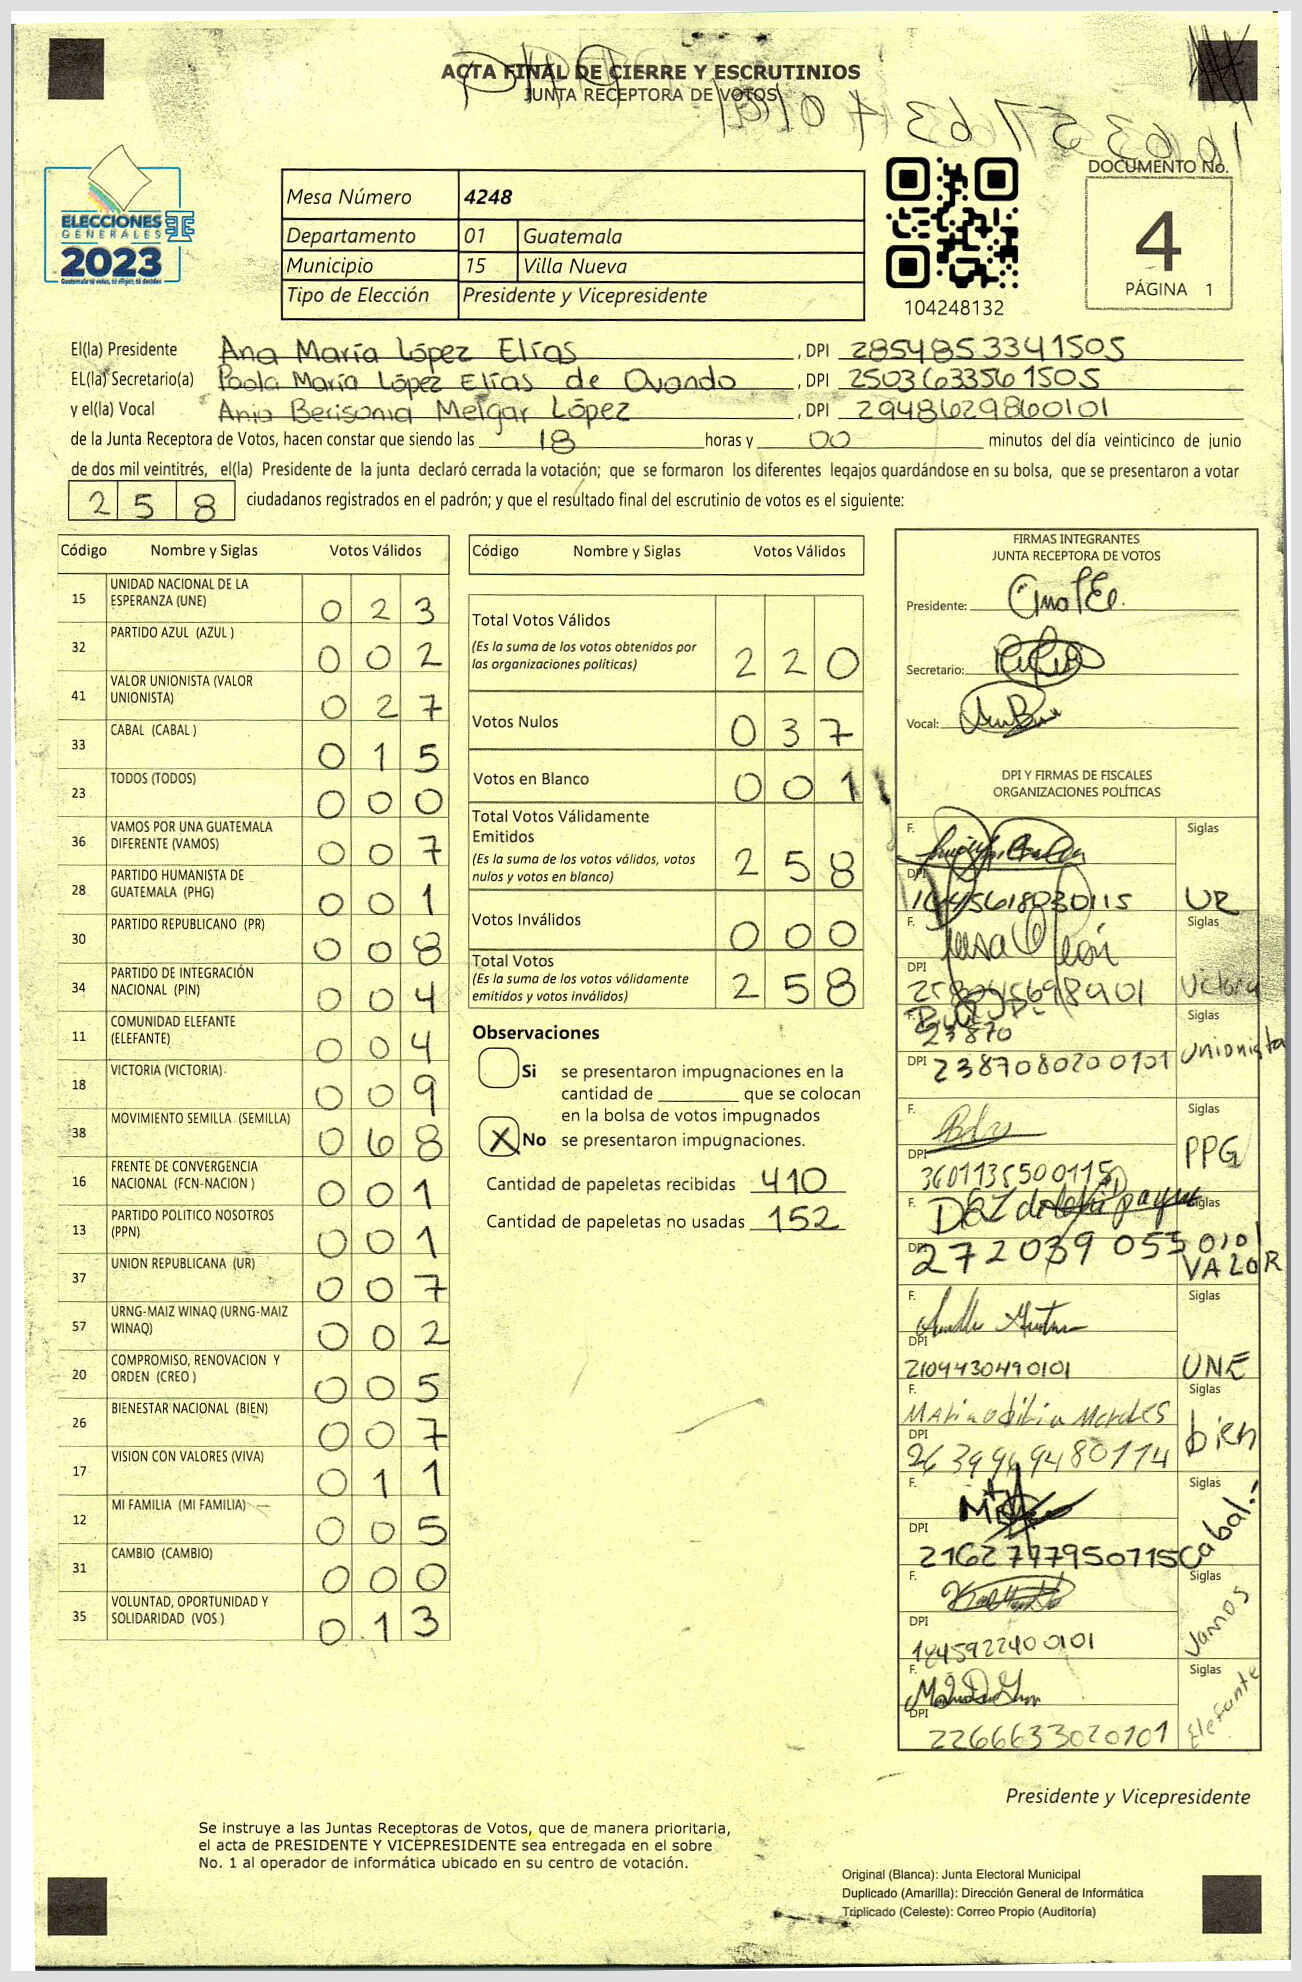 ACTA FINAL DE CIERRE Y ESCRUTINIOS
JUNTA RECEPTORA DE VOTOS
DOCUMENTO No.
4
PÁGINA 1
ELECCIONES
GENERALES
2023
Guatemala tú votas, tú eliges, tú decides
Mesa Número 4248
Departamento 01 Guatemala
Municipio 15 Villa Nueva
Tipo de Elección Presidente y Vicepresidente
104248132
El(la) Presidente Ana María López Elías , DPI 2854853341505
EL(la) Secretario(a) Paola María López Elías de Ovando , DPI 2503633561505
y el(la) Vocal Ania Berisonia Melgar López , DPI 2948629860101
de la Junta Receptora de Votos, hacen constar que siendo las 18 horas y 00 minutos del día veinticinco de junio
de dos mil veintitrés, el(la) Presidente de la junta declaró cerrada la votación; que se formaron los diferentes legajos guardándose en su bolsa, que se presentaron a votar
258 ciudadanos registrados en el padrón; y que el resultado final del escrutinio de votos es el siguiente:
Código Nombre y Siglas Votos Válidos
15 UNIDAD NACIONAL DE LA ESPERANZA (UNE) 023
32 PARTIDO AZUL (AZUL ) 002
41 VALOR UNIONISTA (VALOR UNIONISTA) 027
33 CABAL (CABAL ) 015
23 TODOS (TODOS) 000
36 VAMOS POR UNA GUATEMALA DIFERENTE (VAMOS) 007
28 PARTIDO HUMANISTA DE GUATEMALA (PHG) 001
30 PARTIDO REPUBLICANO (PR) 008
34 PARTIDO DE INTEGRACIÓN NACIONAL (PIN) 004
11 COMUNIDAD ELEFANTE (ELEFANTE) 004
18 VICTORIA (VICTORIA) 009
38 MOVIMIENTO SEMILLA (SEMILLA) 068
16 FRENTE DE CONVERGENCIA NACIONAL (FCN-NACION ) 001
13 PARTIDO POLITICO NOSOTROS (PPN) 001
37 UNION REPUBLICANA (UR) 007
57 URNG-MAIZ WINAQ (URNG-MAIZ WINAQ) 002
20 COMPROMISO, RENOVACION Y ORDEN (CREO ) 005
26 BIENESTAR NACIONAL (BIEN) 007
17 VISION CON VALORES (VIVA) 011
12 MI FAMILIA (MI FAMILIA) 005
31 CAMBIO (CAMBIO) 000
35 VOLUNTAD, OPORTUNIDAD Y SOLIDARIDAD (VOS ) 013
Código Nombre y Siglas Votos Válidos
Total Votos Válidos 220
(Es la suma de los votos obtenidos por
las organizaciones políticas)
Votos Nulos 037
Votos en Blanco 001
Total Votos Válidamente
Emitidos 258
(Es la suma de los votos válidos, votos
nulos y votos en blanco)
Votos Inválidos 000
Total Votos 258
(Es la suma de los votos válidamente
emitidos y votos inválidos)
Observaciones
Si se presentaron impugnaciones en la
cantidad de ________ que se colocan
en la bolsa de votos impugnados
X No se presentaron impugnaciones.
Cantidad de papeletas recibidas 410
Cantidad de papeletas no usadas 152
FIRMAS INTEGRANTES
JUNTA RECEPTORA DE VOTOS
Presidente:
Secretario:
Vocal:
DPI Y FIRMAS DE FISCALES
ORGANIZACIONES POLÍTICAS
F. Siglas
DPI UR
F. Siglas
DPI Victoria
F. Siglas
23870
DPI 2387080200101 Unionista
F. Siglas
DPI 3601135500115 PPG
F. Siglas
DPI 272039 055 0101 VALOR
F. Siglas
DPI 2109430490101 UNE
F. Siglas
DPI bien
F. Siglas
DPI Cabal.-
F. Siglas
DPI 1845922400101 Vamos
F. Siglas
DPI 2266633020101 Elefante
Presidente y Vicepresidente
Se instruye a las Juntas Receptoras de Votos, que de manera prioritaria,
el acta de PRESIDENTE Y VICEPRESIDENTE sea entregada en el sobre
No. 1 al operador de informática ubicado en su centro de votación.
Original (Blanca): Junta Electoral Municipal
Duplicado (Amarilla): Dirección General de Informática
Triplicado (Celeste): Correo Propio (Auditoría)